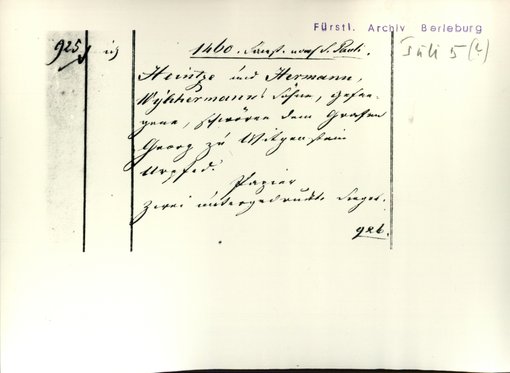 Fürstl. Archiv Berleburg
925 1460. Juli 5 (?)
Heintze und Hermann,
Wykhermanns Söhne, gefan-
gene, schwören dem Grafen
Georg zu Witgenstein
Urpfed.
Papier
Zwei untergedruckte Siegel.